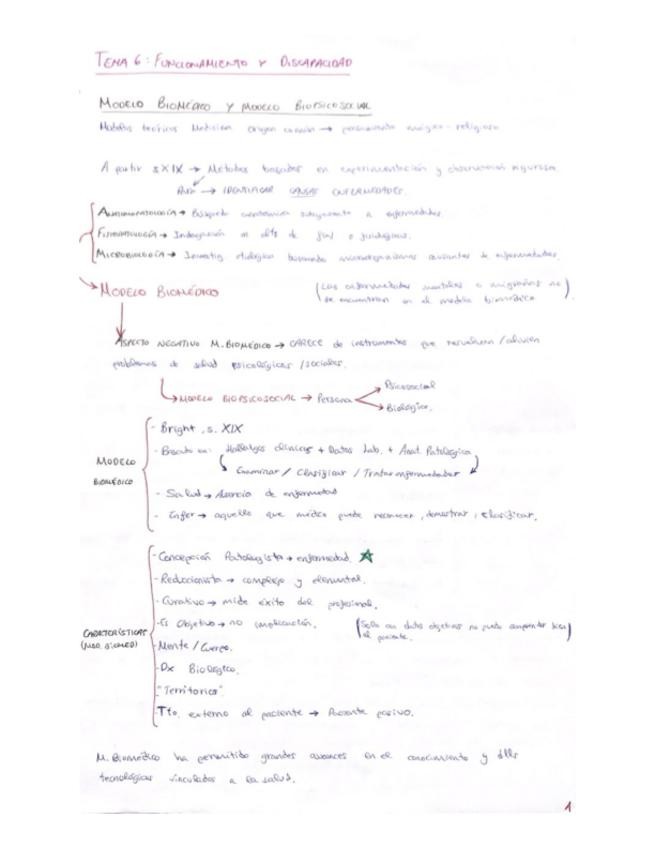 TEMA 6: FUNCIONAMIENTO Y DISCAPACIDAD
MODELO BIOMÉDICO Y MODELO BIOPSICOSOCIAL
Modelos teóricos Medicina origen común → pensamiento mágico-religioso
A partir sXIX → Métodos basados en experimentación y observación rigurosa
Para → IDENTIFICAR CAUSAS ENFERMEDADES.
ANATOMOPATOLOGÍA → Búsqueda subyacente a enfermedades.
FISIOPATOLOGÍA → Indagación en de o fisiológicos.
MICROBIOLOGÍA → Investig. etiológica buscando microorganismos causantes de enfermedades.
→ MODELO BIOMÉDICO
(Las enfermedades mentales o migrañas no se encuentran en el modelo biomédico).
ASPECTO NEGATIVO M. BIOMÉDICO → CARECE de instrumentos que resuelvan/alivien
problemas de salud psicológicas/sociales.
→ MODELO BIOPSICOSOCIAL → Persona
→ Psicosocial
→ Biológico.
MODELO BIOMÉDICO
- Bright, s. XIX
- Basado en: Hallazgos clínicos + Datos Lab. + Anat. Patológica
Examinar / Clasificar / Tratar enfermedades
- Salud → Ausencia de enfermedad
- Enfer → aquello que médico puede reconocer, demostrar, clasificar.
CARACTERÍSTICAS (MOD. BIOMED)
- Concepción Patologista → enfermedad. ★
- Reduccionista → complejo y elemental.
- Curativo → mide éxito del profesional.
- Es Objetivo → no implicación.
(Solo con datos objetivos no puedo comprender bien al paciente.)
- Mente / Cuerpo.
- Dx Biológico.
- "Territorios".
- Tto. externo al paciente → Paciente pasivo.
M. Biomédico ha permitido grandes avances en el conocimiento y dllo
tecnológicos vinculados a la salud.
1